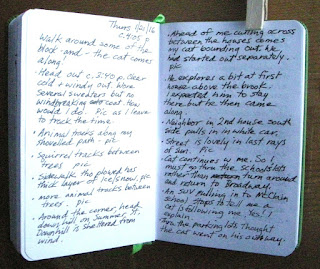 Thurs 1/21/16
c. 5:05 p
Walk around some of the
block - and - the cat comes
along!
• Head out c. 3:40 p. Clear
cold + windy out. Wore
several sweaters but no
windbreaking coat. How
would I do? Pic as I leave
to track the time.
• Animal tracks along my
shovelled path - pic
• Squirrel tracks between
trees pic
• Sidewalk tho plowed has
thick layer of ice/snow. pic
• more animal tracks between
trees. pic
• Around the corner, head
down hill on Summer St.
Downhill is sheltered from
wind.
• Ahead of me cutting across
between the houses comes
my cat bounding out. We
had started out separately.
pic
• He explores a bit at first
house above the brook.
I expected him to stay
there but he then came
along.
• Neighbor in 2nd house south
side pulls in in white car.
• Street is lovely in last rays
of sun. pic
• Cat continues w me. So I
must do thru the school lots
rather than turn around
and return to Broadway.
• An SUV pulling in to McClain
school stops to tell me a
cat is following me. Yes! I
explain
• Thru the parking lots thought
the cat went on his own way.